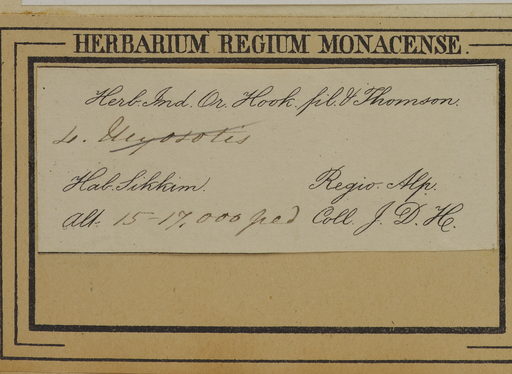 HERBARIUM REGIUM MONACENSE.
Herb. Ind. Or. Hook. fil. & Thomson.
4. Myosotis
Hab. Sikkim. Regio. Alp.
Alt. 15-17,000 ped Coll. J. D. H.